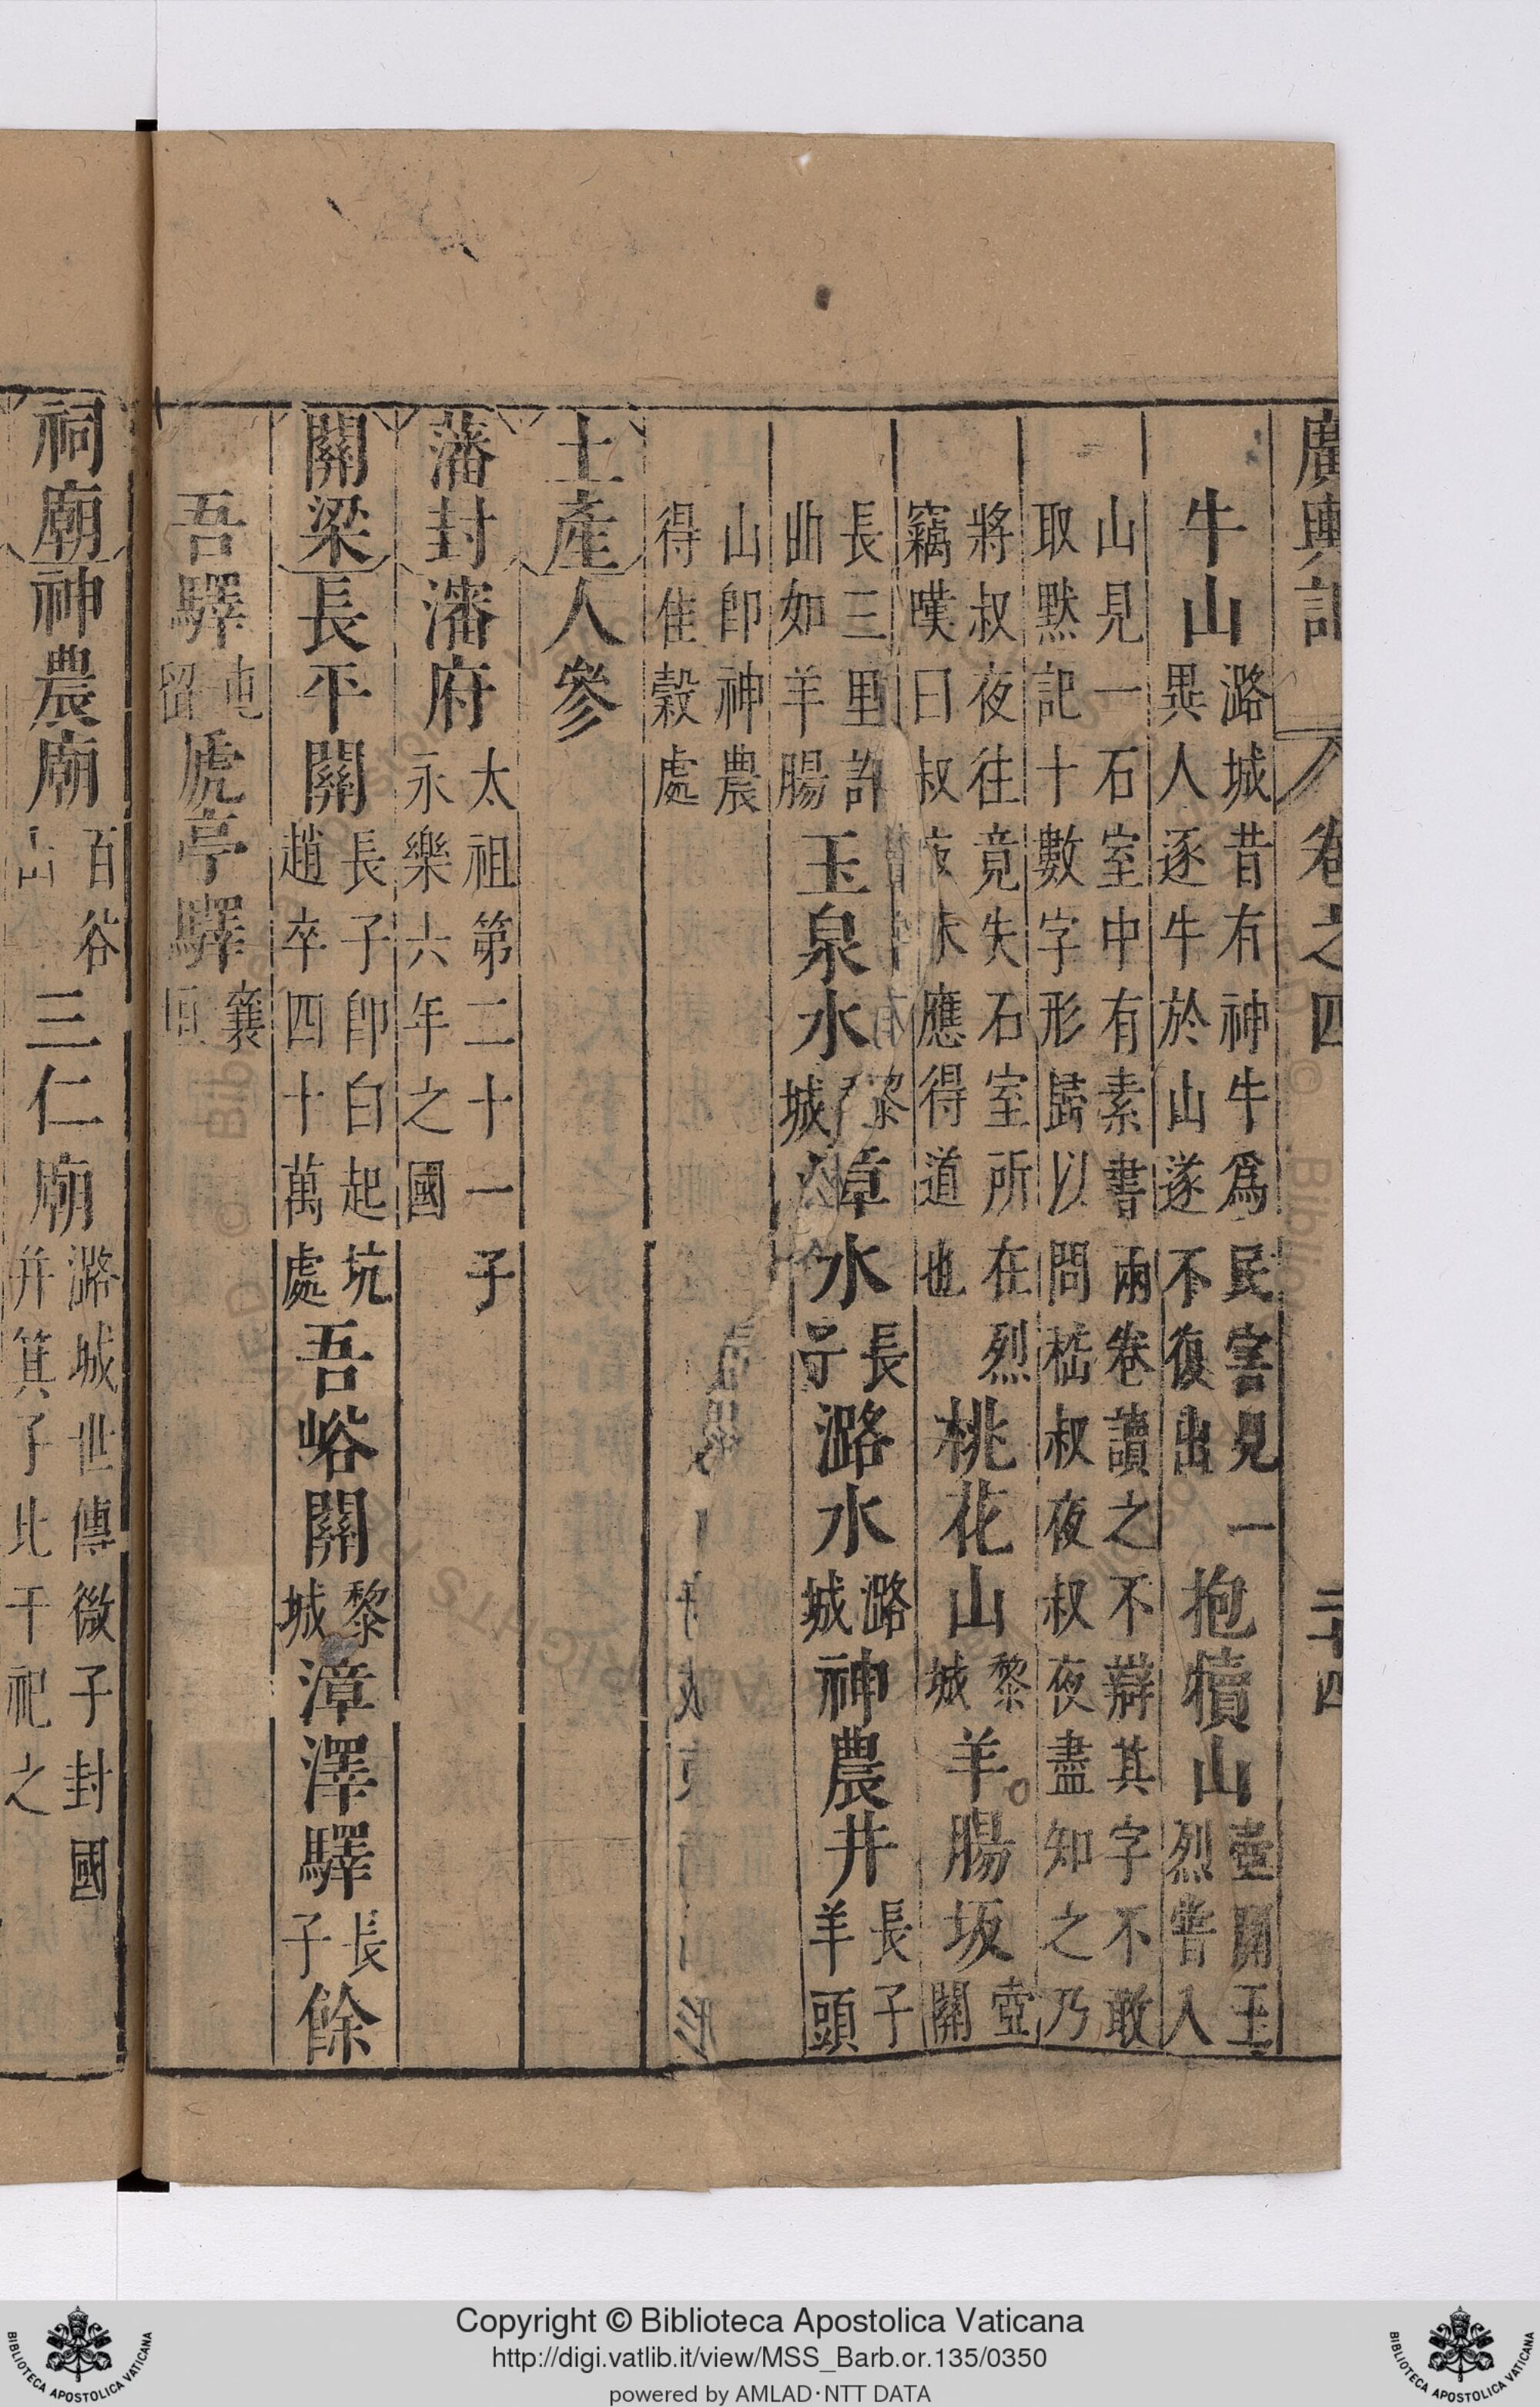 廣輿記 卷之四 二十四
牛山潞城昔有神牛爲民害見一異人逐牛於山遂不復出抱犢山壺關王烈嘗入
山見一石室中有素書兩卷讀之不辯其字不敢取黙記十數字形歸以問嵇叔夜叔夜盡知之乃
將叔夜往竟失石室所在烈竊嘆曰叔夜未應得道也桃花山黎城羊腸坂壺關
長三里許曲如羊腸玉泉水黎城漳水長子潞水潞城神農井長子羊頭
山卽神農得佳穀處
土產人參
藩封瀋府太祖第二十一子永樂六年之國
關梁長平關長子卽白起坑趙卒四十萬處吾峪關黎城漳澤驛長子餘
吾驛屯留虒亭驛襄垣
祠廟神農廟百谷山三仁廟潞城世傳微子封國并箕子比干祀之
Copyright © Biblioteca Apostolica Vaticana
http://digi.vatlib.it/view/MSS_Barb.or.135/0350
powered by AMLAD·NTT DATA
BIBLIOTECA APOSTOLICA VATICANA
BIBLIOTECA APOSTOLICA VATICANA